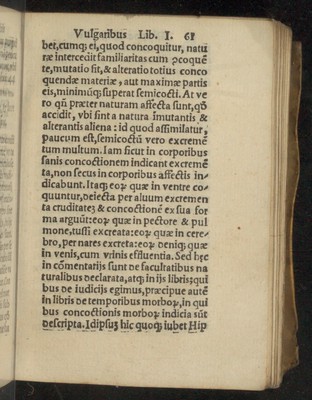 Vulgaribus Lib. I. 61
bet, cumqꝫ ei, quod concoquitur, natu
ræ intercedit familiaritas cum ꝓcoquẽ
te, mutatio fit, & alteratio totius conco
quendæ materiæ, aut maximæ partis
eis, minimũqꝫ superat semicocti. At ve
ro qñ præter naturam affecta sunt, qđ
accidit, vbi sint a natura imutantis &
alterantis aliena: id quod assimilatur,
paucum est, semicoctũ vero excremẽ
tum multum. Iam sicut in corporibus
sanis concoctionem indicant excremẽ
ta, non secus in corporibus affectis in-
dicabunt. Itaqꝫ eoꝝ quæ in ventre co-
quuntur, deiecta per aluum excremen
ta cruditatẽ & concoctionẽ ex sua for
ma arguũt: eoꝝ quæ in pectore & pul
mone, tussi excreata: eoꝝ quæ in cere-
bro, per nares excreta: eoꝝ deniqꝫ quæ
in venis, cum vrinis effluentia. Sed hęc
in cõmentarijs sunt de facultatibus na
turalibus declarata, atqꝫ in ijs libris, qui
bus de iudicijs egimus, præcipue autẽ
in libris de temporibus morboꝝ, in qui
bus concoctionis morboꝝ indicia sũt
descripta. Idipsũ hic quoqꝫ iubet Hip